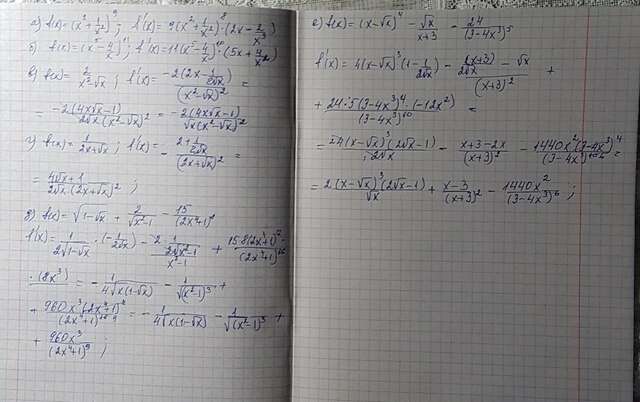 а) f(x)=(x²+1/x²)⁹; f'(x)=9(x²+1/x²)⁸·(2x-2/x³)
б) f(x)=(x-4/x)¹¹; f'(x)=11(x²-4/x)¹⁰·(5x+4/x²)
в) f(x)=2/(x²-√x); f'(x)=-2(2x-1/(2√x))/(x²-√x)² =
= -2(4x√x-1)/(2√x(x²-√x)²) = -2(4x√x-1)/(√x(x²-√x)²)
г) f(x)=1/(2x+√x); f'(x)=-(2+1/(2√x))/(2x+√x)² =
= (4√x+1)/(2√x·(2x+√x)²);
д) f(x)=√(1-√x)+2/√(x²-1)-15/(2x⁴+1)⁸
f'(x)=1/(2√(1-√x))·(-1/(2√x))-2·(1/(2√(x²-1)))/(x²-1)+15·8(2x⁴+1)⁷·/(2x⁴+1)¹⁶
·(8x³)=-1/(4√x(1-√x))-1/√(x²-1)³+
+960x³(2x⁴+1)⁷/(2x⁴+1)¹⁶=-1/(4√x(1-√x))-1/√(x²-1)³+
+960x³/(2x⁴+1)⁹;
е) f(x)=(x-√x)⁴-√x/(x+3)-24/(3-4x³)⁵
f'(x)=4(x-√x)³(1-1/(2√x))-((x+3)/(2√x)-√x)/(x+3)²+
+24·5(3-4x³)⁴·(-12x²)/(3-4x³)¹⁰=
=4(x-√x)³(2√x-1)/(2√x)-(x+3-2x)/(x+3)²-1440x²(3-4x³)⁴/(3-4x³)¹⁰=
=2(x-√x)³(2√x-1)/√x+(x-3)/(x+3)²-1440x²/(3-4x³)⁶;